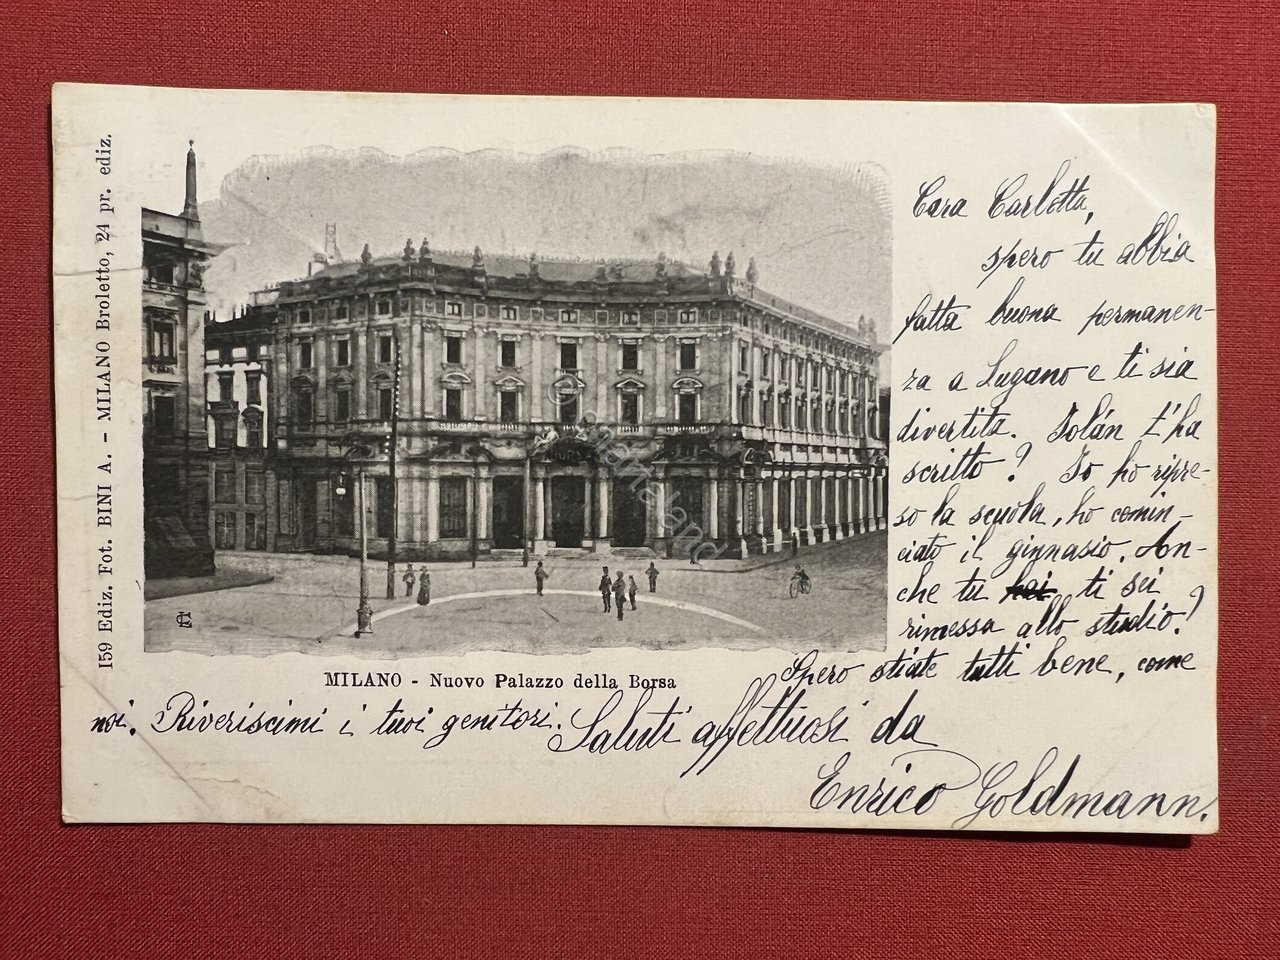 159 Ediz. Fot. BINI A. - MILANO Broletto, 24 pr. ediz.
MILANO - Nuovo Palazzo della Borsa
Cara Carlotta,
spero tu abbia
fatta buona permanen-
za a Lugano e ti sia
divertita. Iolán t'ha
scritto? Io ho ripre-
so la scuola, ho comin-
ciato il ginnasio. An-
che tu hai ti sei
rimessa allo studio?
Spero stiate tutti bene, come
noi. Riveriscimi i tuoi genitori. Saluti affettuosi da
Enrico Goldmann.
© mameland